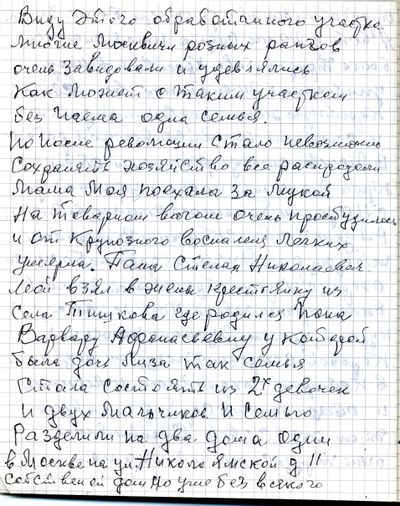 Виду этого обработанного участка
многие Москвичи розных рангов
очень завидовали и удевлялись
как может с таким участком
без наема одна семья.
Но после революции стало невозможно
сохранять хозяйство все распродали
Мама Моя поехала за мукой
на товарном вагоне очень простудилась
и от Крупозного воспаления легких
умерла. Папа Степан Николаевич
мой взял в жены крестьянку из
села Тишкова где родился папа
Варвару Афонасьевну у которой
была дочь Лиза так семья
стала состоять из 2х девочек
и двух мальчиков И семью
разделили на два дома один
в Москве на ул. Николо Ямской д 11
собственой дом но уже без всякого